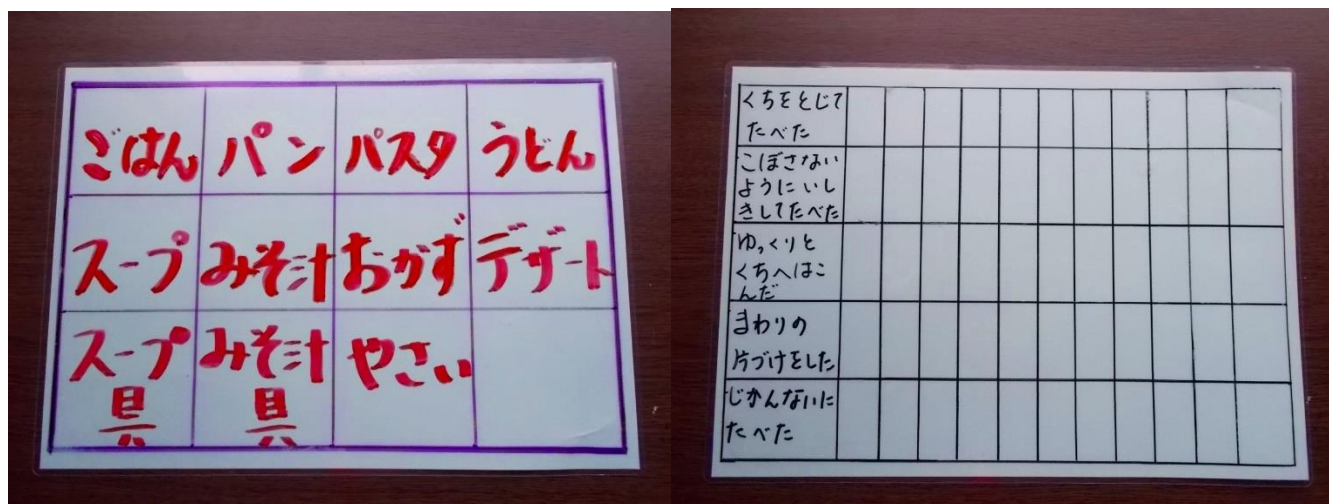 ごはん パン パスタ うどん
スープ みそ汁 おかず デザート
スープ みそ汁 やさい
具 具
くちをとじて
たべた
こぼさない
ようにいし
きしてたべた
ゆっくりと
くちへはこ
んだ
まわりの
片づけをした
じかんないに
たべた